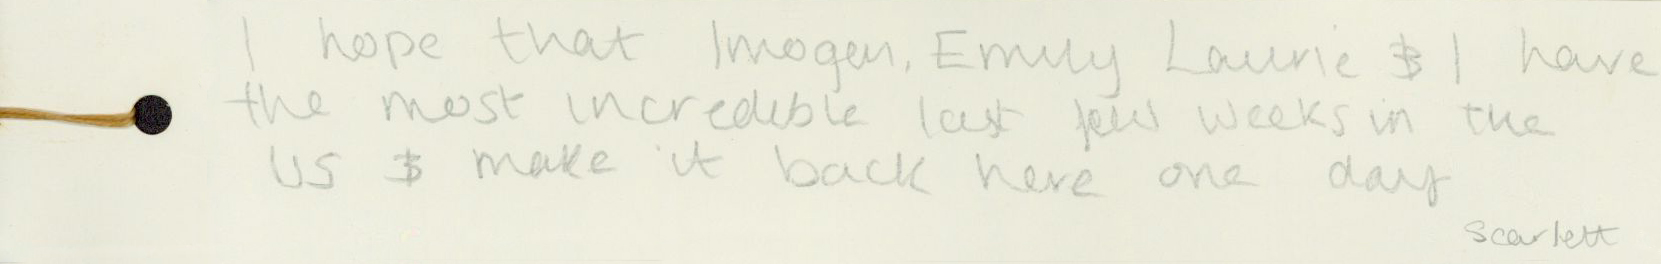 I hope that Imogen, Emily Laurie & I have
the most incredible last few weeks in the
US & make it back here one day
Scarlett